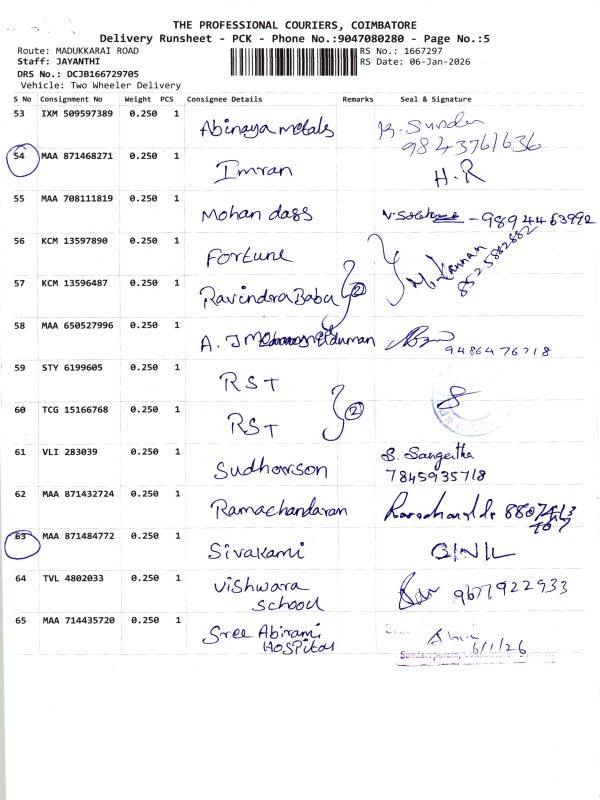 THE PROFESSIONAL COURIERS, COIMBATORE
Delivery Runsheet - PCK - Phone No.:9047080280 - Page No.:5
Route: MADUKKARAI ROAD RS No.: 1667297
Staff: JAYANTHI RS Date: 06-Jan-2026
DRS No.: DCJB166729705
Vehicle: Two Wheeler Delivery
S No Consignment No Weight PCS Consignee Details Remarks Seal & Signature
53 IXM 509597389 0.250 1 Abinaya metals K. Sunder
9843761636
54 MAA 871468271 0.250 1 Imran H.R
55 MAA 708111819 0.250 1 Mohan dass -9894463992
56 KCM 13597890 0.250 1 Fortune M. Kannan
8525882882
57 KCM 13596487 0.250 1 Ravindra Babu 2
58 MAA 650527996 0.250 1 A. J 9486476718
59 STY 6199605 0.250 1 RST
60 TCG 15166768 0.250 1 RST 2
61 VLI 283039 0.250 1 Sudhowson S. Sangeitha
7845935718
62 MAA 871432724 0.250 1 Ramachandaran
63 MAA 871484772 0.250 1 Sivakami
64 TVL 4802033 0.250 1 Vishwara 9677922933
School
65 MAA 714435720 0.250 1 Sree Abirami
Hospital 6/1/26
Sundarapuram,